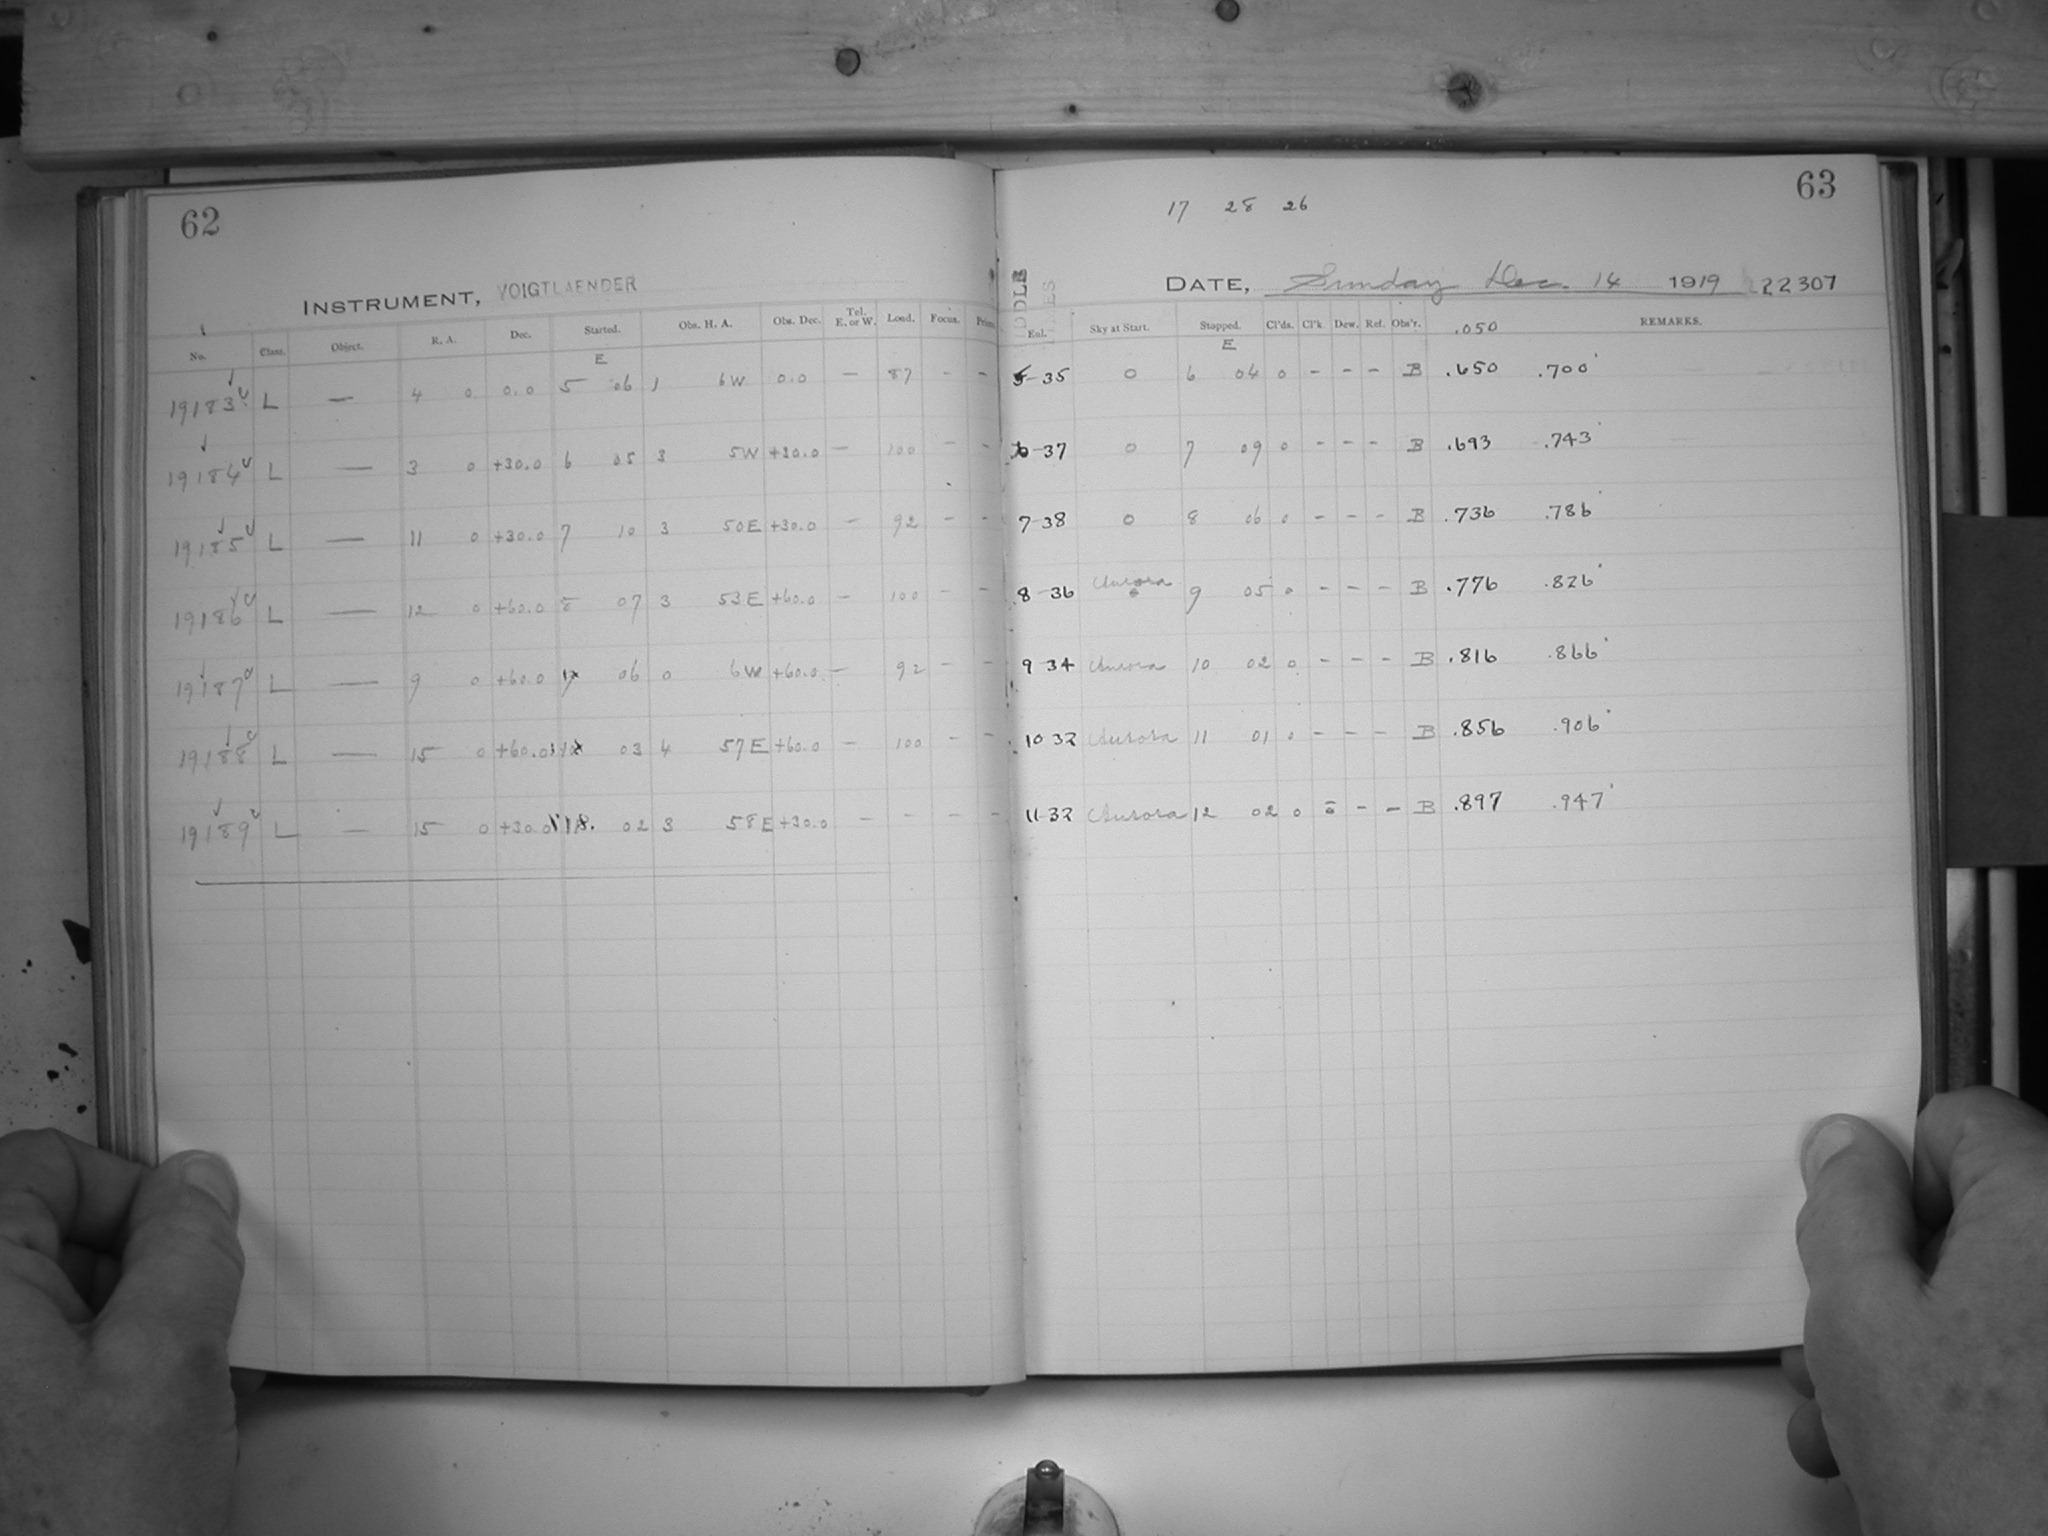 62
INSTRUMENT, VOIGTLAENDER
No. Class. Object. R. A. Dec. Started. Obs. H. A. Obs. Dec. Tel. E. or W. Load. Focus. Prism
E
19183 L — 4 0 0.0 5 06 1 6W 0.0 — 87 - -
19184 L — 3 0 +30.0 6 05 3 5W +30.0 — 100 - -
19185 L — 11 0 +30.0 7 10 3 50E +30.0 — 92 - -
19186 L — 12 0 +60.0 8 07 3 53E +60.0 — 100 - -
19187 L — 9 0 +60.0 06 0 6W +60.0 — 92 - -
19188 L — 15 0 +60.0 03 4 57E +60.0 — 100 - -
19189 L — 15 0 +30.0 02 3 58E +30.0 — - - -
63
17 28 26
DATE, Sunday Dec. 14 1919 22307
Enl. Sky at Start. Stopped. Cl'ds. Cl'k. Dew. Ref. Obs'r. .050 REMARKS.
E
5-35 0 6 04 0 - - - B .650 .700
6-37 0 7 09 0 - - - B .693 .743
7-38 0 8 06 0 - - - B .736 .786
8-36 Aurora 9 05 0 - - - B .776 .826
9 34 Aurora 10 02 0 - - - B .816 .866
10 32 Aurora 11 01 0 - - - B .856 .906
11-32 Aurora 12 02 0 - - B .897 .947